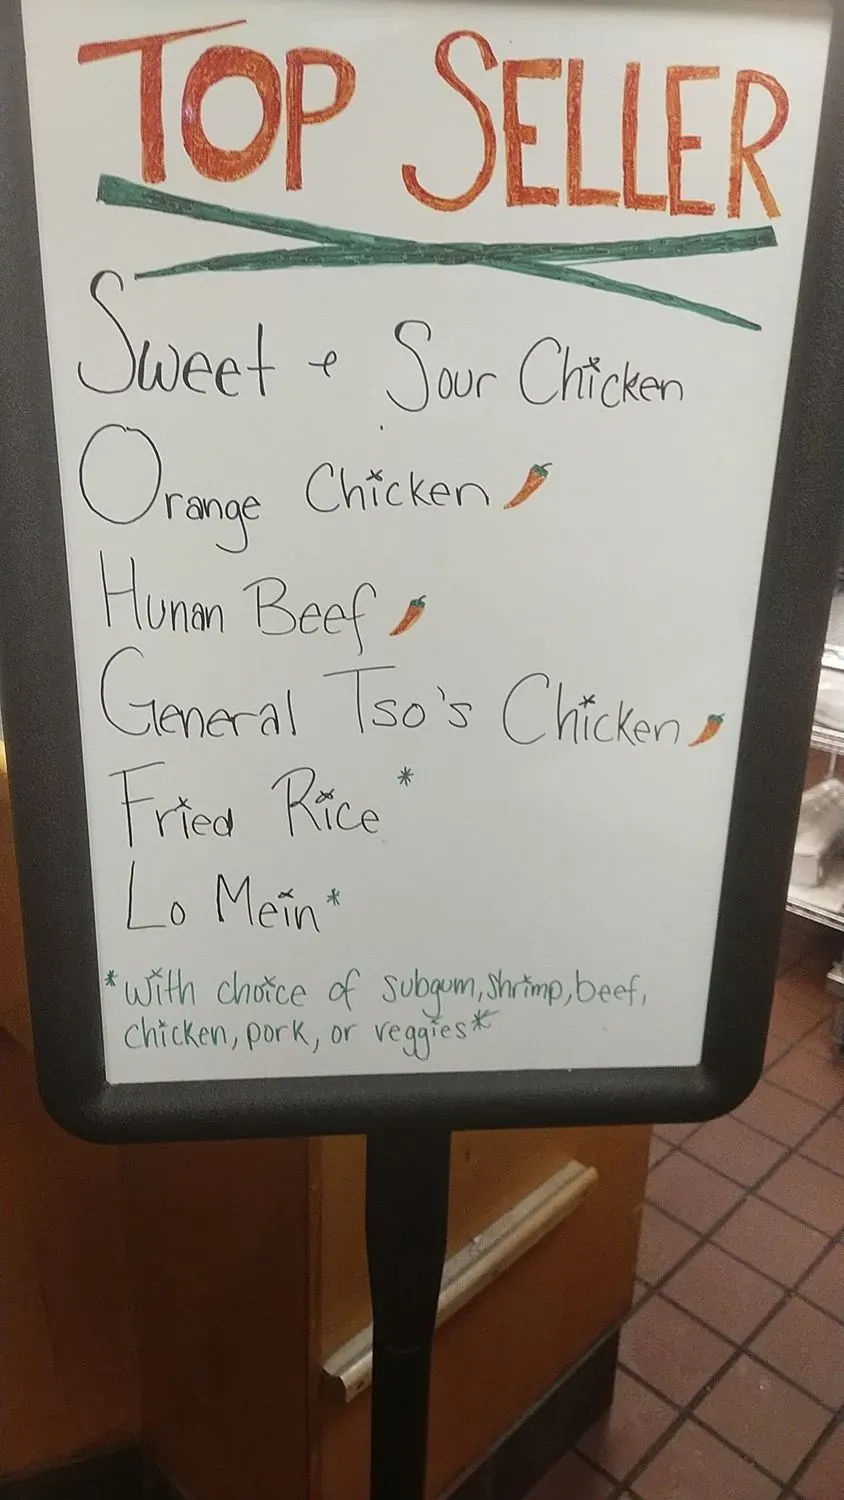 TOP SELLER
Sweet & Sour Chicken
Orange Chicken
Hunan Beef
General Tso's Chicken
Fried Rice *
Lo Mein *
*with choice of subgum, shrimp, beef,
chicken, pork, or veggies*